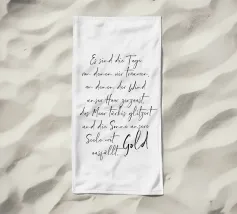 Es sind die Tage
von denen wir träumen,
an denen der Wind
unser Haar zerzaust,
das Meer türkis glitzert
und die Sonne unsere
Seele mit Gold
ausfüllt